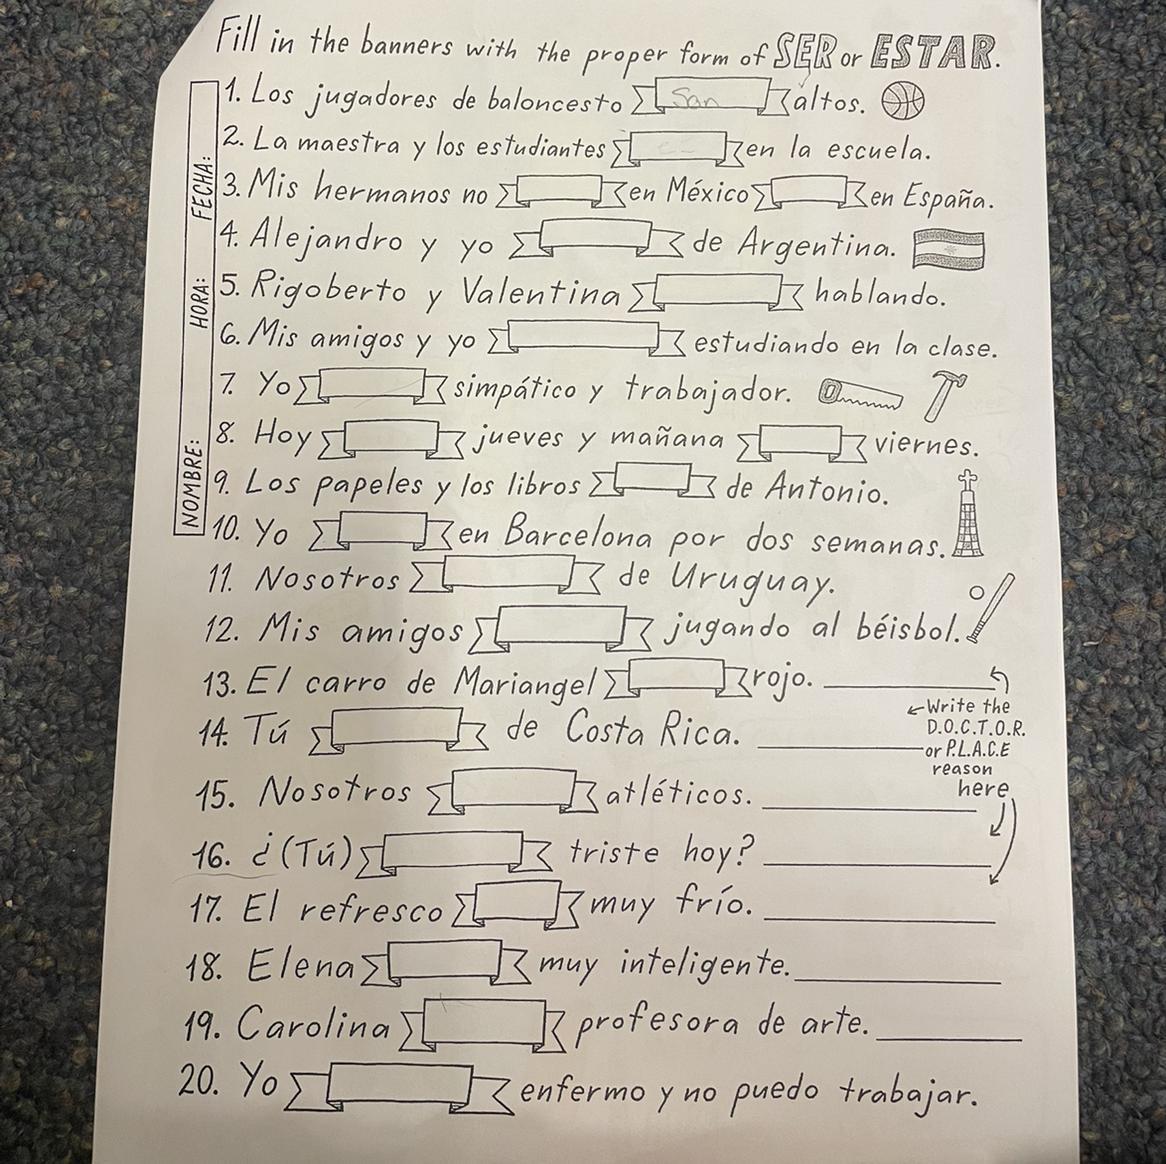 Fill in the banners with the proper form of SER or ESTAR.
FECHA:
HORA:
NOMBRE:
1. Los jugadores de baloncesto San altos.
2. La maestra y los estudiantes en la escuela.
3. Mis hermanos no en México en España.
4. Alejandro y yo de Argentina.
5. Rigoberto y Valentina hablando.
6. Mis amigos y yo estudiando en la clase.
7. Yo simpático y trabajador.
8. Hoy jueves y mañana viernes.
9. Los papeles y los libros de Antonio.
10. Yo en Barcelona por dos semanas.
11. Nosotros de Uruguay.
12. Mis amigos jugando al béisbol.
13. El carro de Mariangel rojo.
←Write the
D.O.C.T.O.R.
or P.L.A.C.E
reason
here
14. Tú de Costa Rica.
15. Nosotros atléticos.
16. ¿(Tú) triste hoy?
17. El refresco muy frío.
18. Elena muy inteligente.
19. Carolina profesora de arte.
20. Yo enfermo y no puedo trabajar.